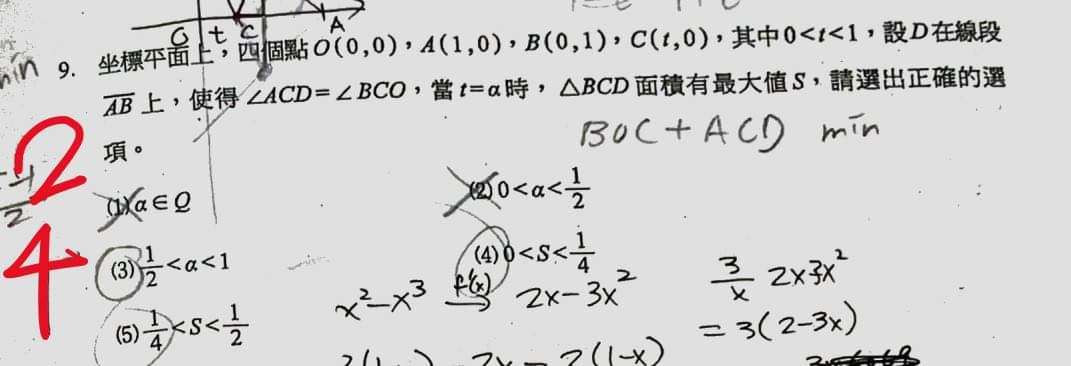 O t C A
min
9. 坐標平面上，四個點O(0,0)，A(1,0)，B(0,1)，C(t,0)，其中0<t<1，設D在線段
AB上，使得∠ACD=∠BCO，當t=α時，△BCD面積有最大值S，請選出正確的選
項。
BOC+ACD min
2
4
(1)α∈Q
(2)0<α<1/2
(3)1/2<α<1
(4)0<S<1/4
(5)1/4<S<1/2
x²-x³ f'(x)→ 2x-3x²
3/x 2x3x²
=3(2-3x)